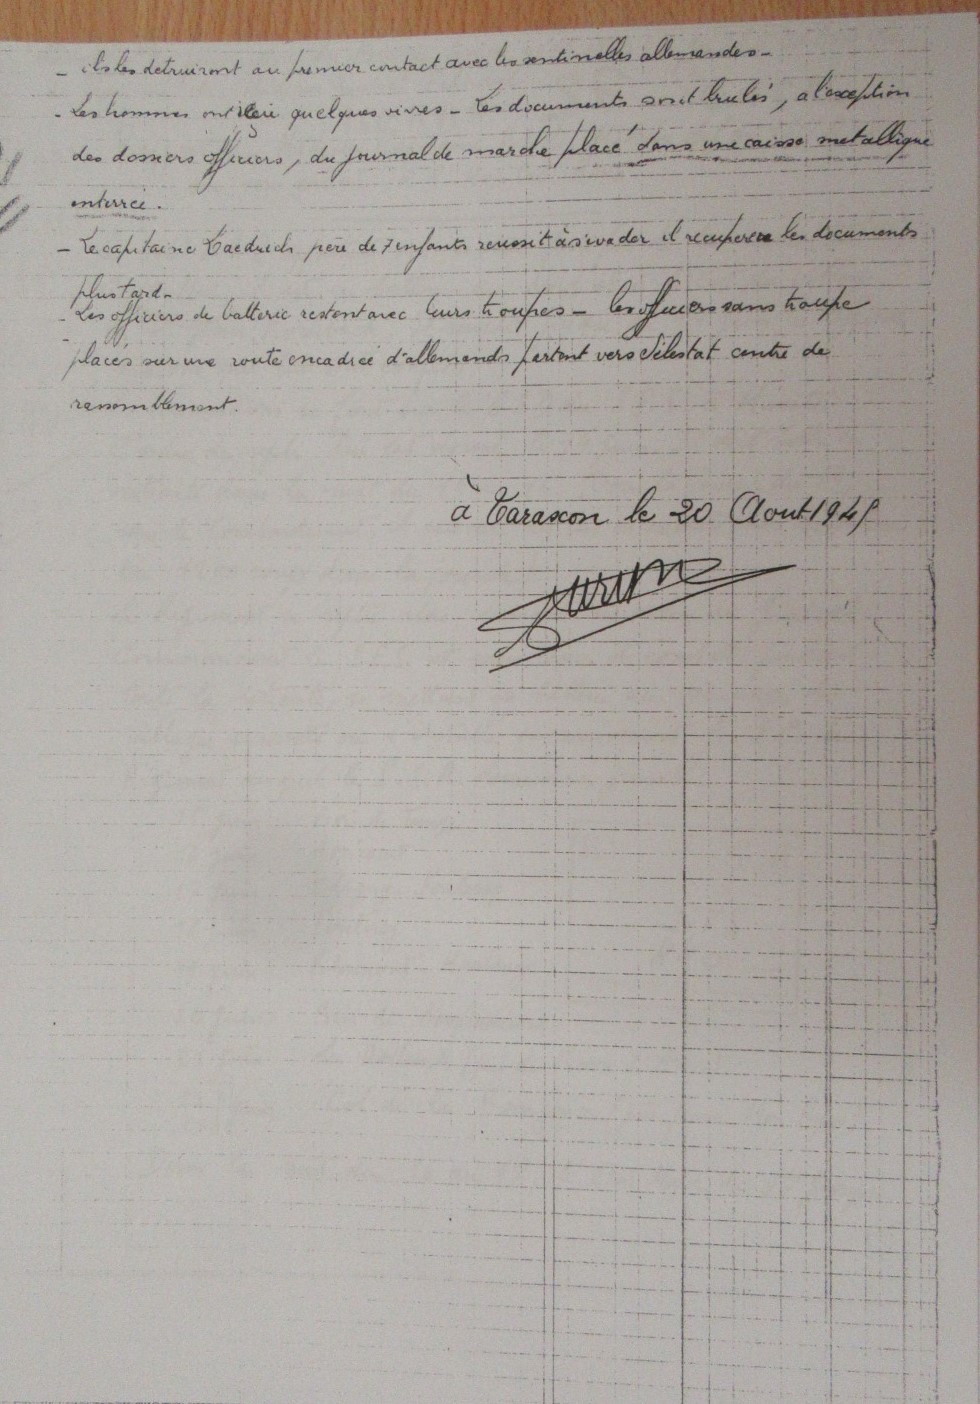 - ils les detruiront au premier contact avec les sentinelles allemandes -
- Les hommes ont quelques vivres - Les documents sont brulés, a l'exception
des dossiers officiers, du journal de marche placé dans une caisse metallique
enterrée.
- Le capitaine père de 7 enfants reussit à s'evader il recuperera les documents
plus tard -
- Les officiers de batterie restent avec leurs troupes - les officiers sans troupe
placés sur une route encadrée d'allemands partent vers Sélestat centre de
rassemblement.
à Tarascon le 20 Aout 1945